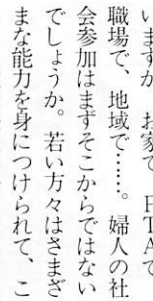 いますか。お家で、PTAで、
職場で、地域で……。婦人の社
会参加はまずそこからではない
でしょうか。若い方々はさまざ
まな能力を身につけられて、こ